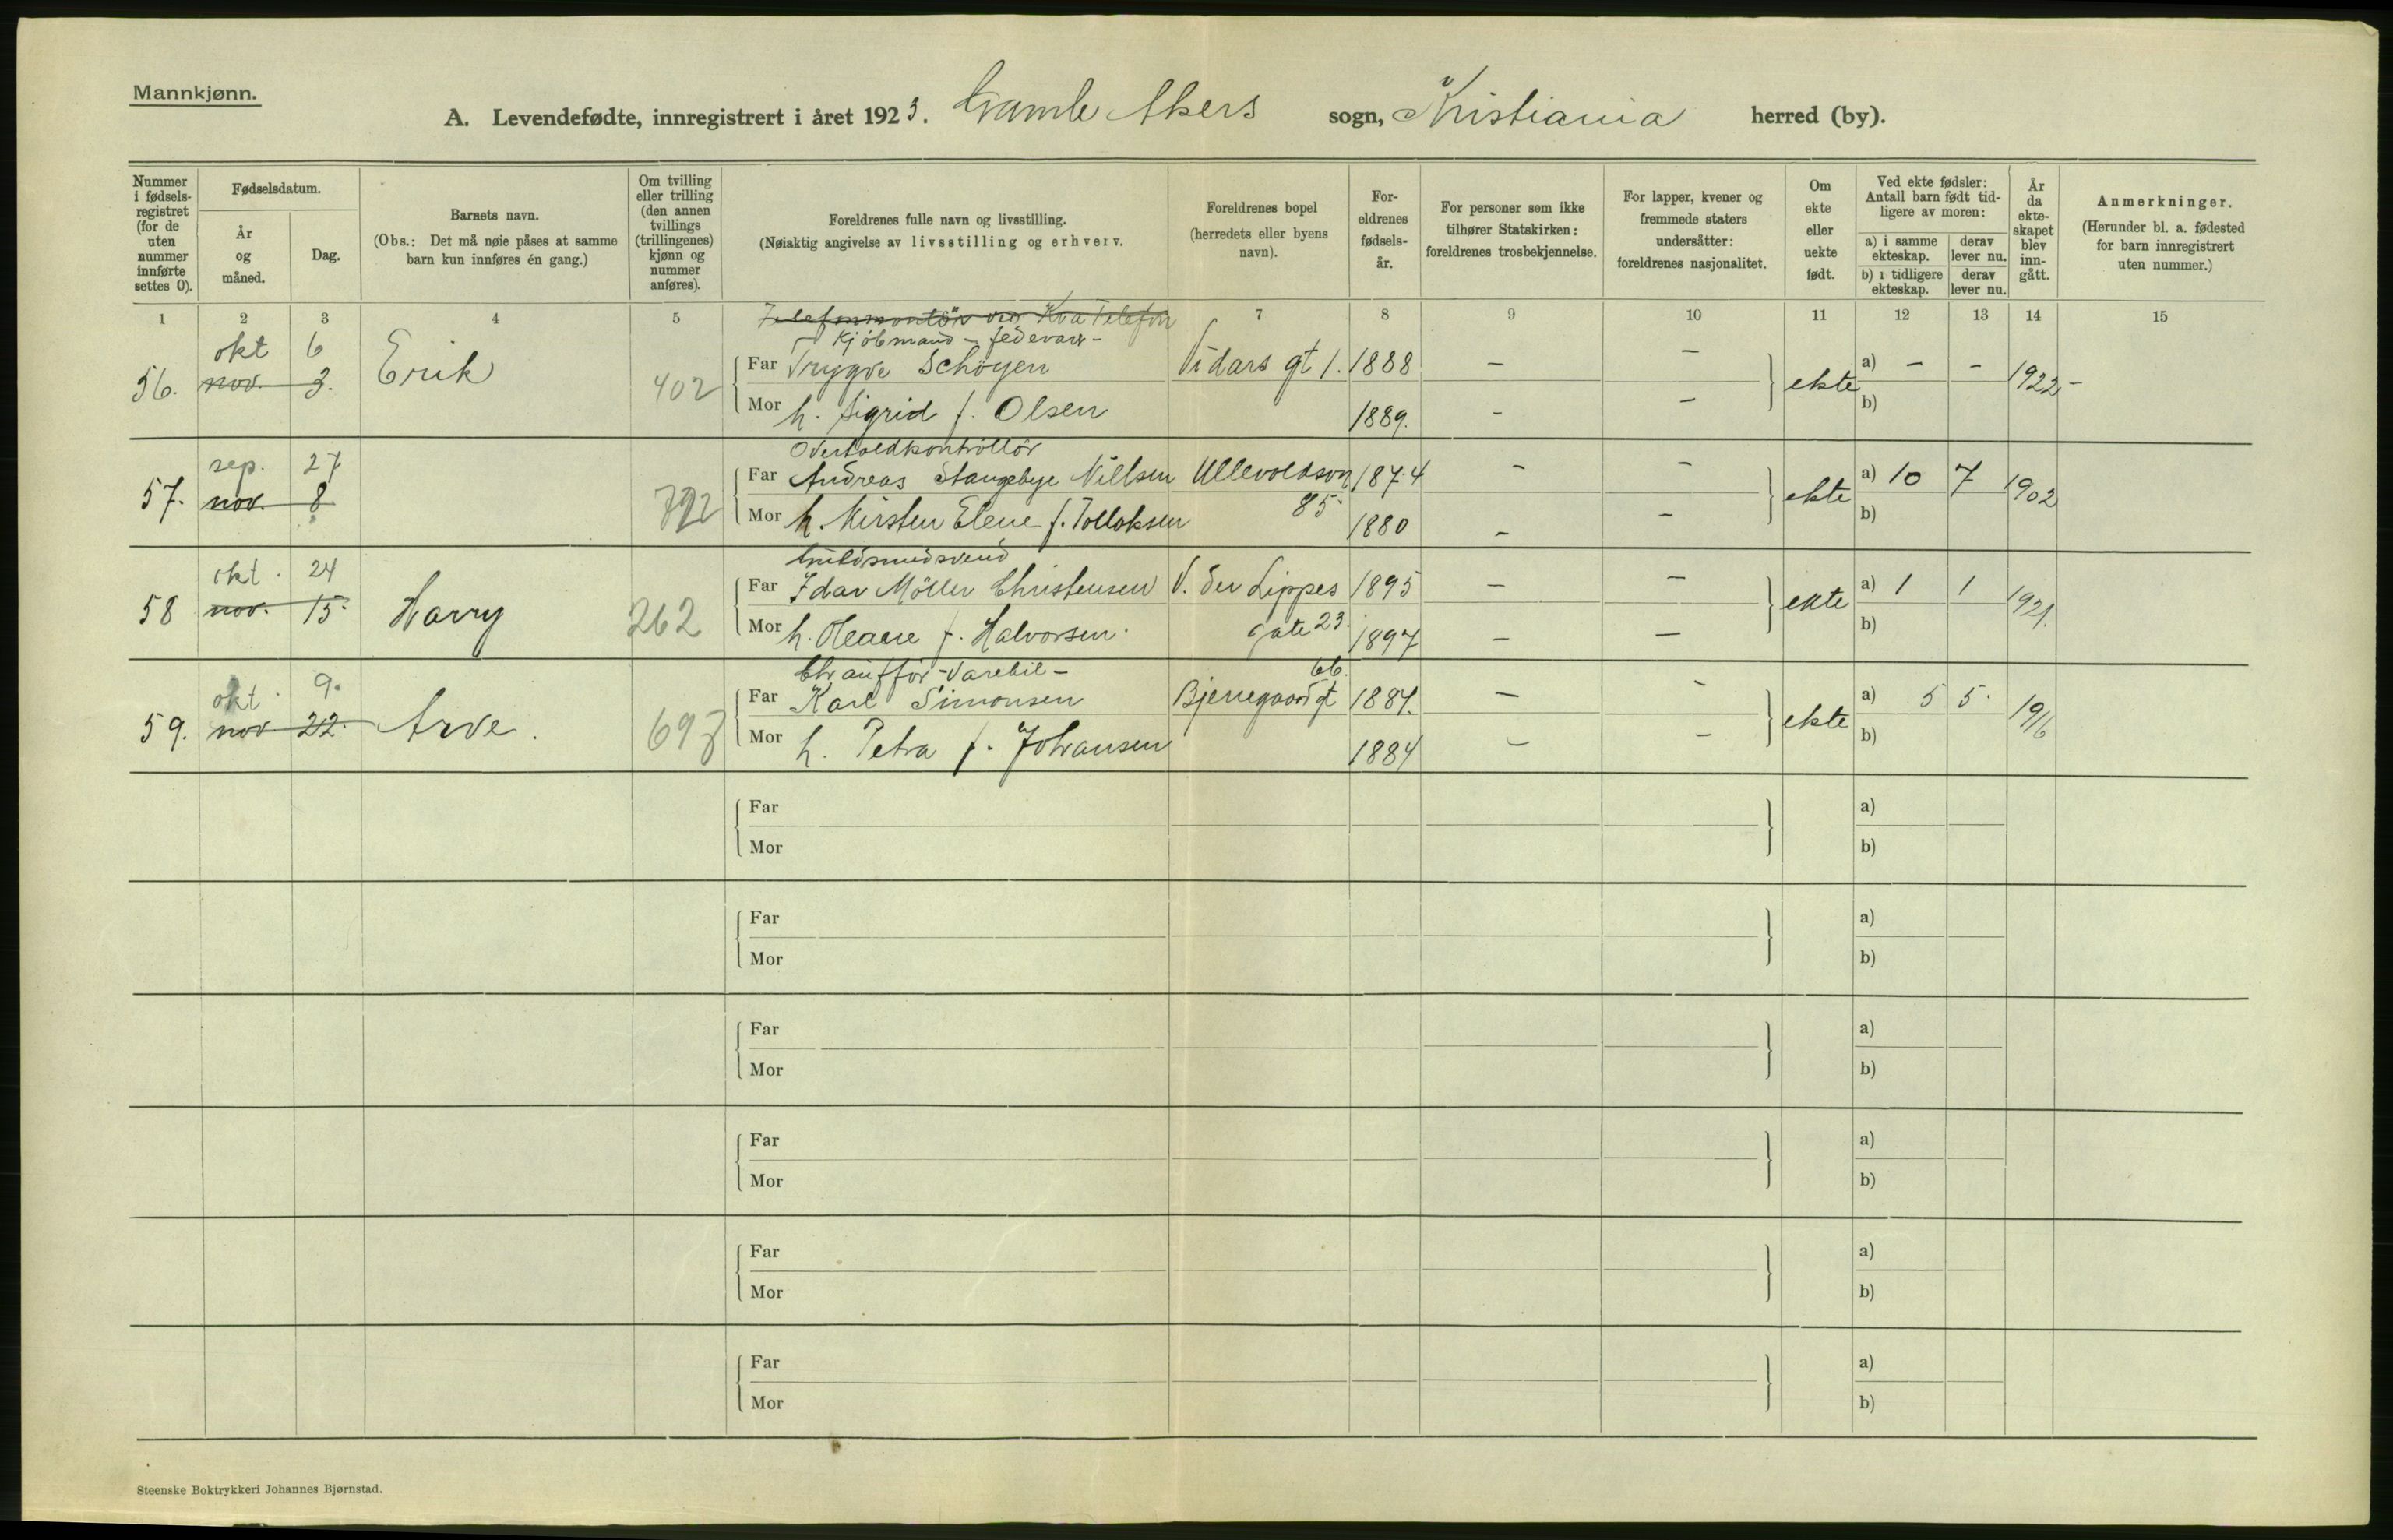 Mannkjønn.
A. Levendefødte, innregistrert i året 1923. Gamle Akers sogn, Kristiania herred (by).
Nummer i fødsels-registret (for de uten nummer innførte settes 0).
Fødselsdatum.
År og måned.
Dag.
Barnets navn.
(Obs.: Det må nøie påses at samme barn kun innføres én gang.)
Om tvilling eller trilling (den annen tvillings (trillingenes) kjønn og nummer anføres).
Foreldrenes fulle navn og livsstilling.
(Nøiaktig angivelse av livsstilling og erhverv.
Foreldrenes bopel (herredets eller byens navn).
For-eldrenes fødsels-år.
For personer som ikke tilhører Statskirken: foreldrenes trosbekjennelse.
For lapper, kvener og fremmede staters undersåtter: foreldrenes nasjonalitet.
Om ekte eller uekte født.
Ved ekte fødsler: Antall barn født tid-ligere av moren:
a) i samme ekteskap.
derav lever nu.
b) i tidligere ekteskap.
derav lever nu.
År da ekte-skapet blev inn-gått.
Anmerkninger.
(Herunder bl. a. fødested for barn innregistrert uten nummer.)
1 2 3 4 5 7 8 9 10 11 12 13 14 15
Telefonmontör ved Kra Telefon
Kjöbmand - fedevarer -
okt 6
56. nov. 3. Erik 402 Far Trygve Schöyen Vidars gt 1. 1888 - - ekte a) - - 1922 -
Mor h. Sigrid f. Olsen 1889. - - b)
sep. 27
57. nov. 8 792 Far Andreas Stangebye Nillsen Ullevoldsvn 1874 - - ekte a) 10 7 1902
Mor h. Kirsten Elene f. Tolloksen 85. 1880 - - b)
Guldsmedsvend
okt. 24
58 nov. 15. Harry 262 Far Idar Möller Christensen V. der Lippes 1895 - - ekte a) 1 1 1921.
Mor h. f. Halvorsen. gate 23. 1897 - - b)
Chaufför - Varebil - 66.
okt. 9.
59. nov 22. Arve. 697 Far Karl Simonsen Bjerregaardgt 1887. - - ekte a) 5 5. 1916
Mor h. Petra f. Johansen 1884 - - b)
Far a)
Mor b)
Far a)
Mor b)
Far a)
Mor b)
Far a)
Mor b)
Far a)
Mor b)
Far a)
Mor b)
Steenske Boktrykkeri Johannes Bjørnstad.